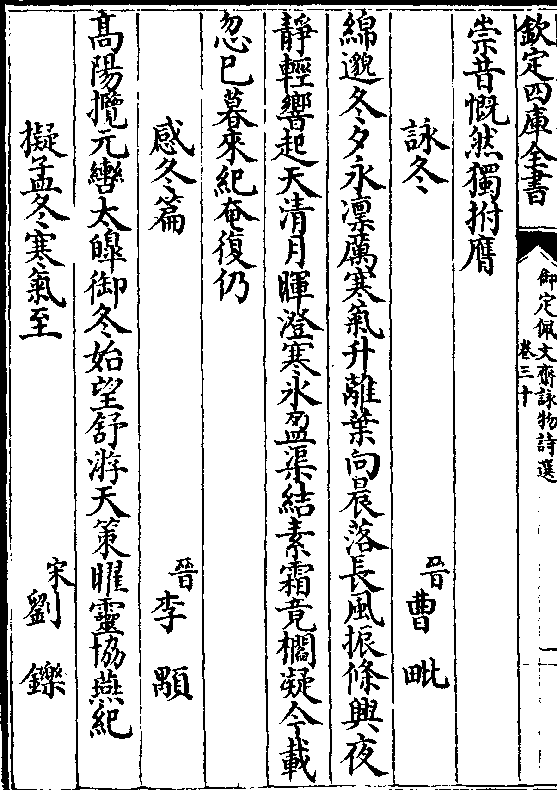 欽定四庫全書
御定佩文齋詠物詩選
卷三十
崇昔慨然獨拊膺
詠冬 晉曹毗
綿邈冬夕永凛厲寒氣升離葉向晨落長風振條興夜
靜輕響起天清月暉澄寒氷盈渠結素霜竟櫩凝今載
忽已暮來紀奄復仍
感冬篇 晉李顒
髙陽攬元轡太皞御冬始望舒游天策曜靈協燕紀
擬孟冬寒氣至 宋劉鑠